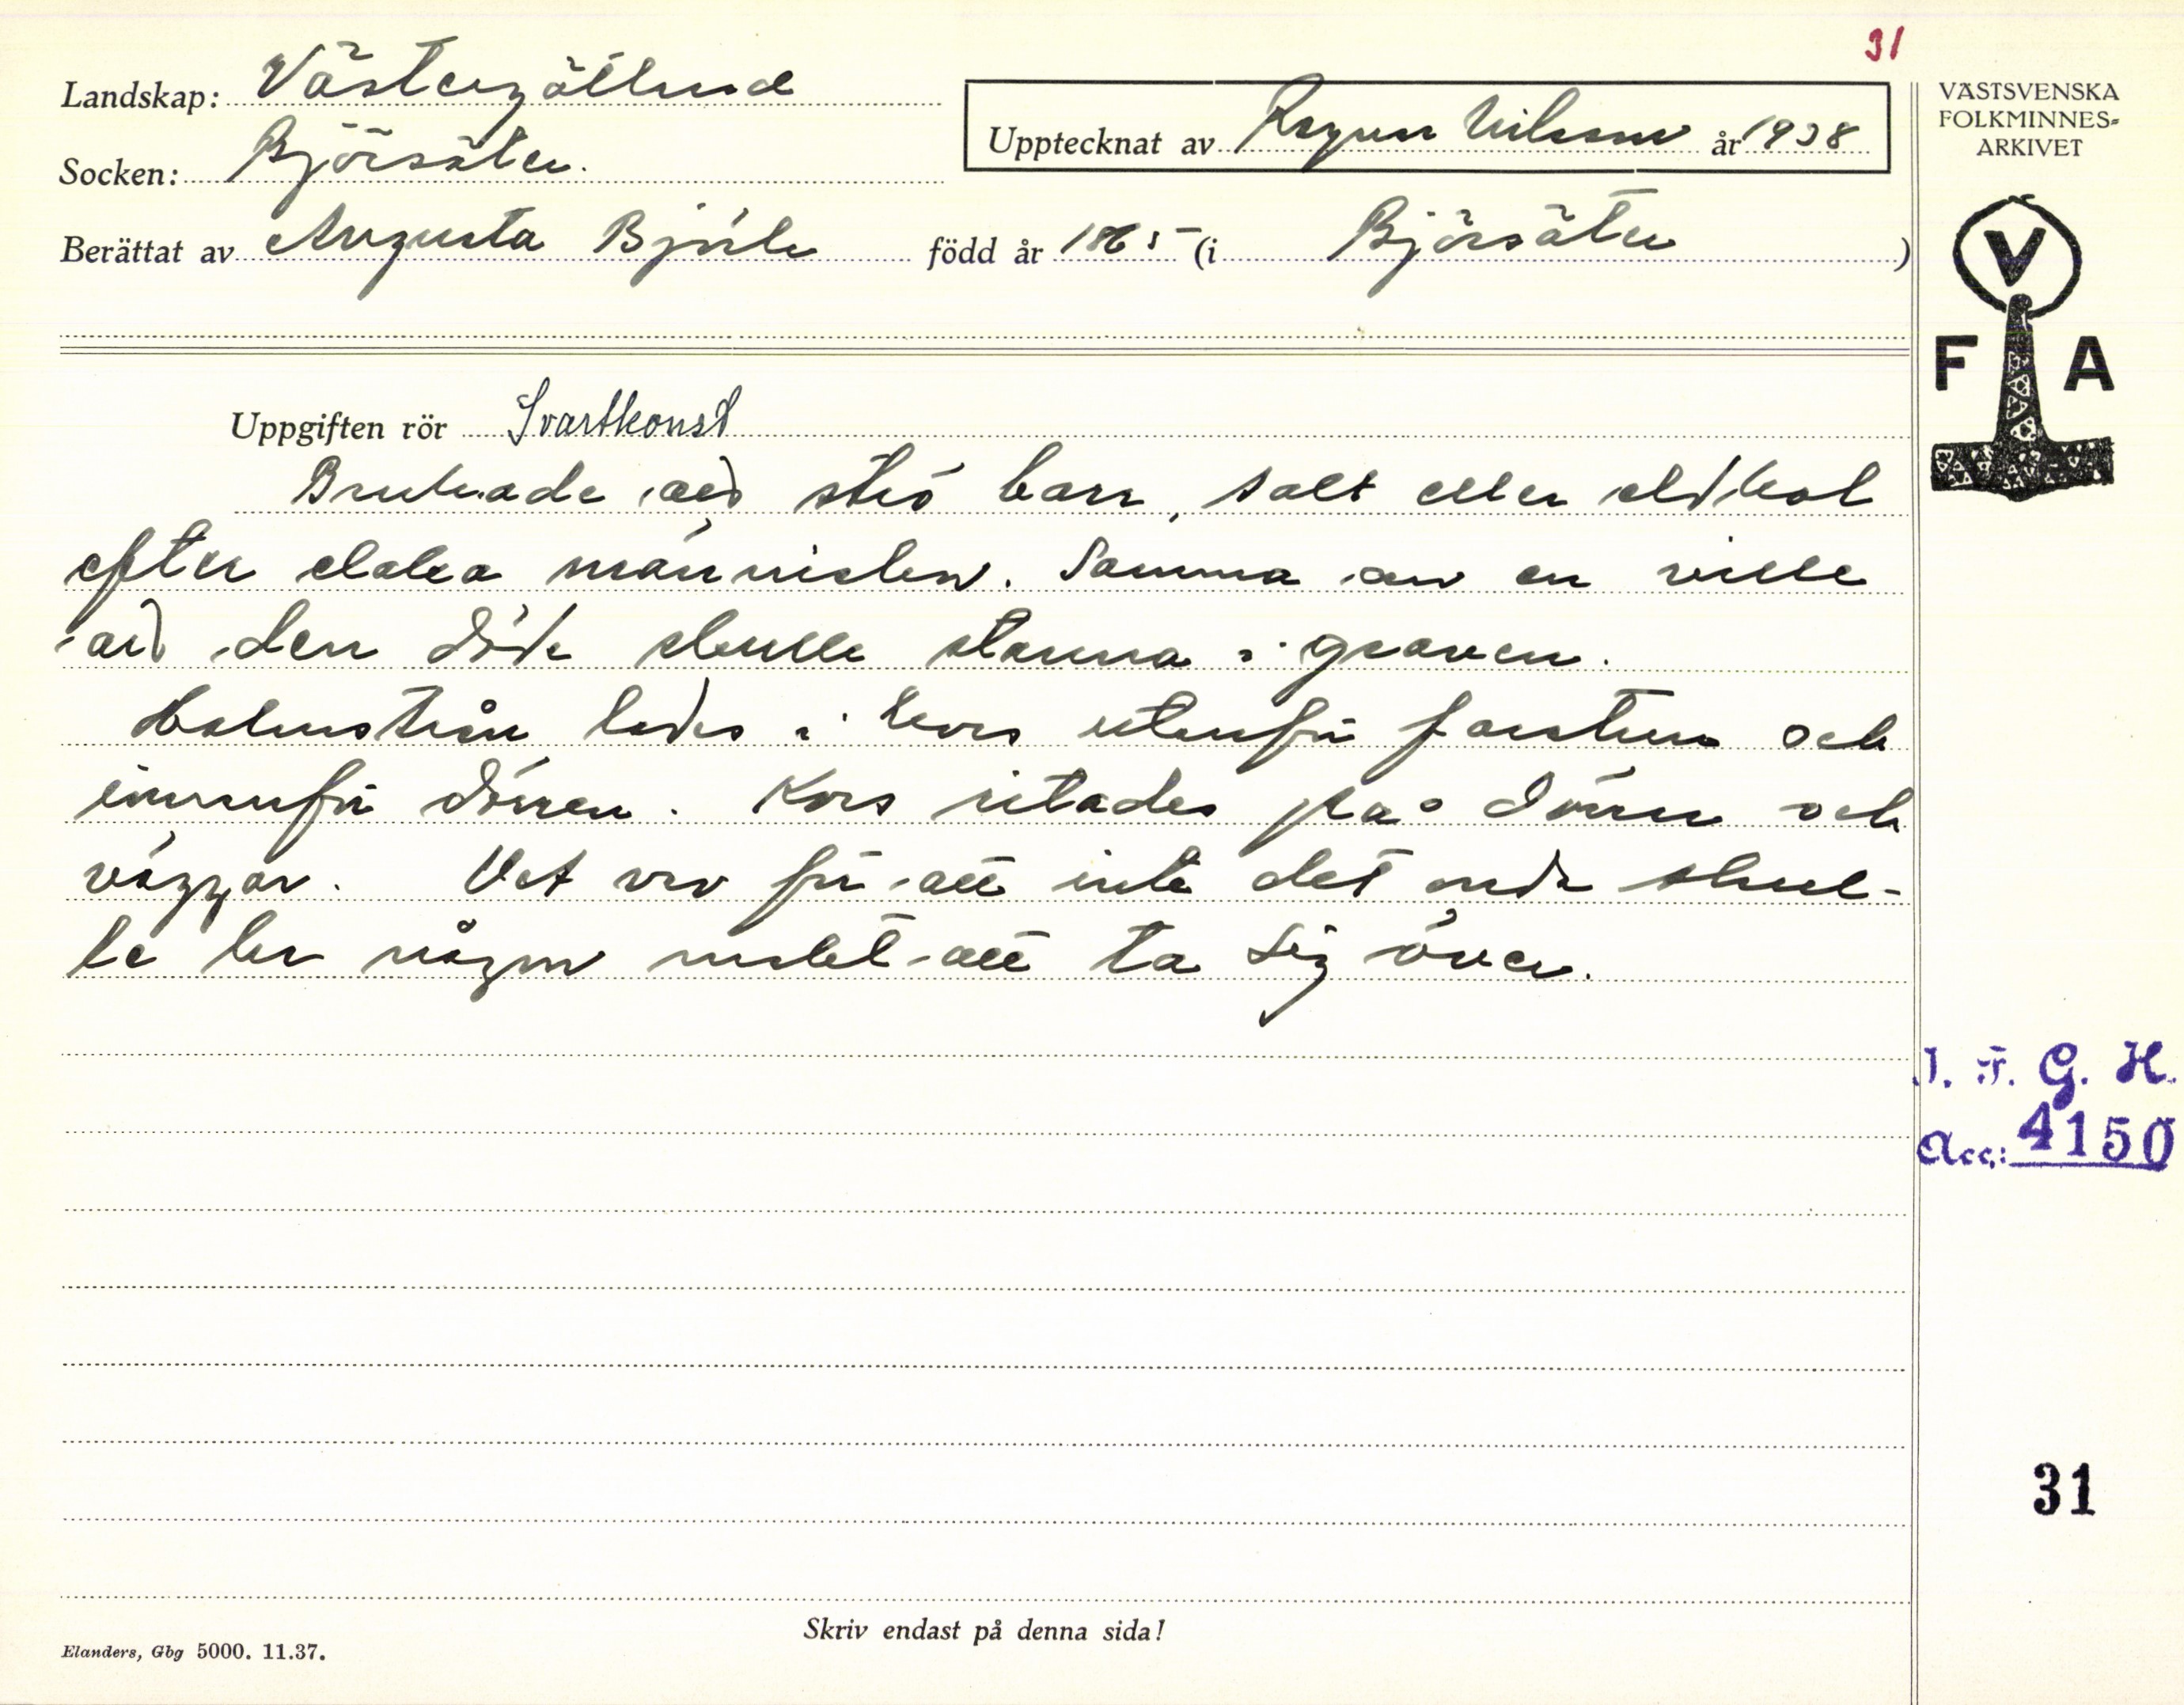 31
Landskap: Västergötland
Upptecknat av Ragnar Nilsson år 1938
VÄSTSVENSKA
FOLKMINNES=
ARKIVET
Socken: Björsäter.
Berättat av Augusta född år 1865 (i Björsäter)
V
F A
Uppgiften rör Svartkonst
Brukade att strö barr, salt eller eldkol
efter elaka människor. Samma om en ville
att den döde skulle stanna i graven.
Halmstrån lades i kors utanför farstun och
innanför dörren. Kors ritades på dörrar och
väggar. Det var för att inte det onde skul-
le ha någon makt att ta sig över.
I. F. G. H.
Acc.: 4150
31
Skriv endast på denna sida!
Elanders, Gbg 5000. 11.37.